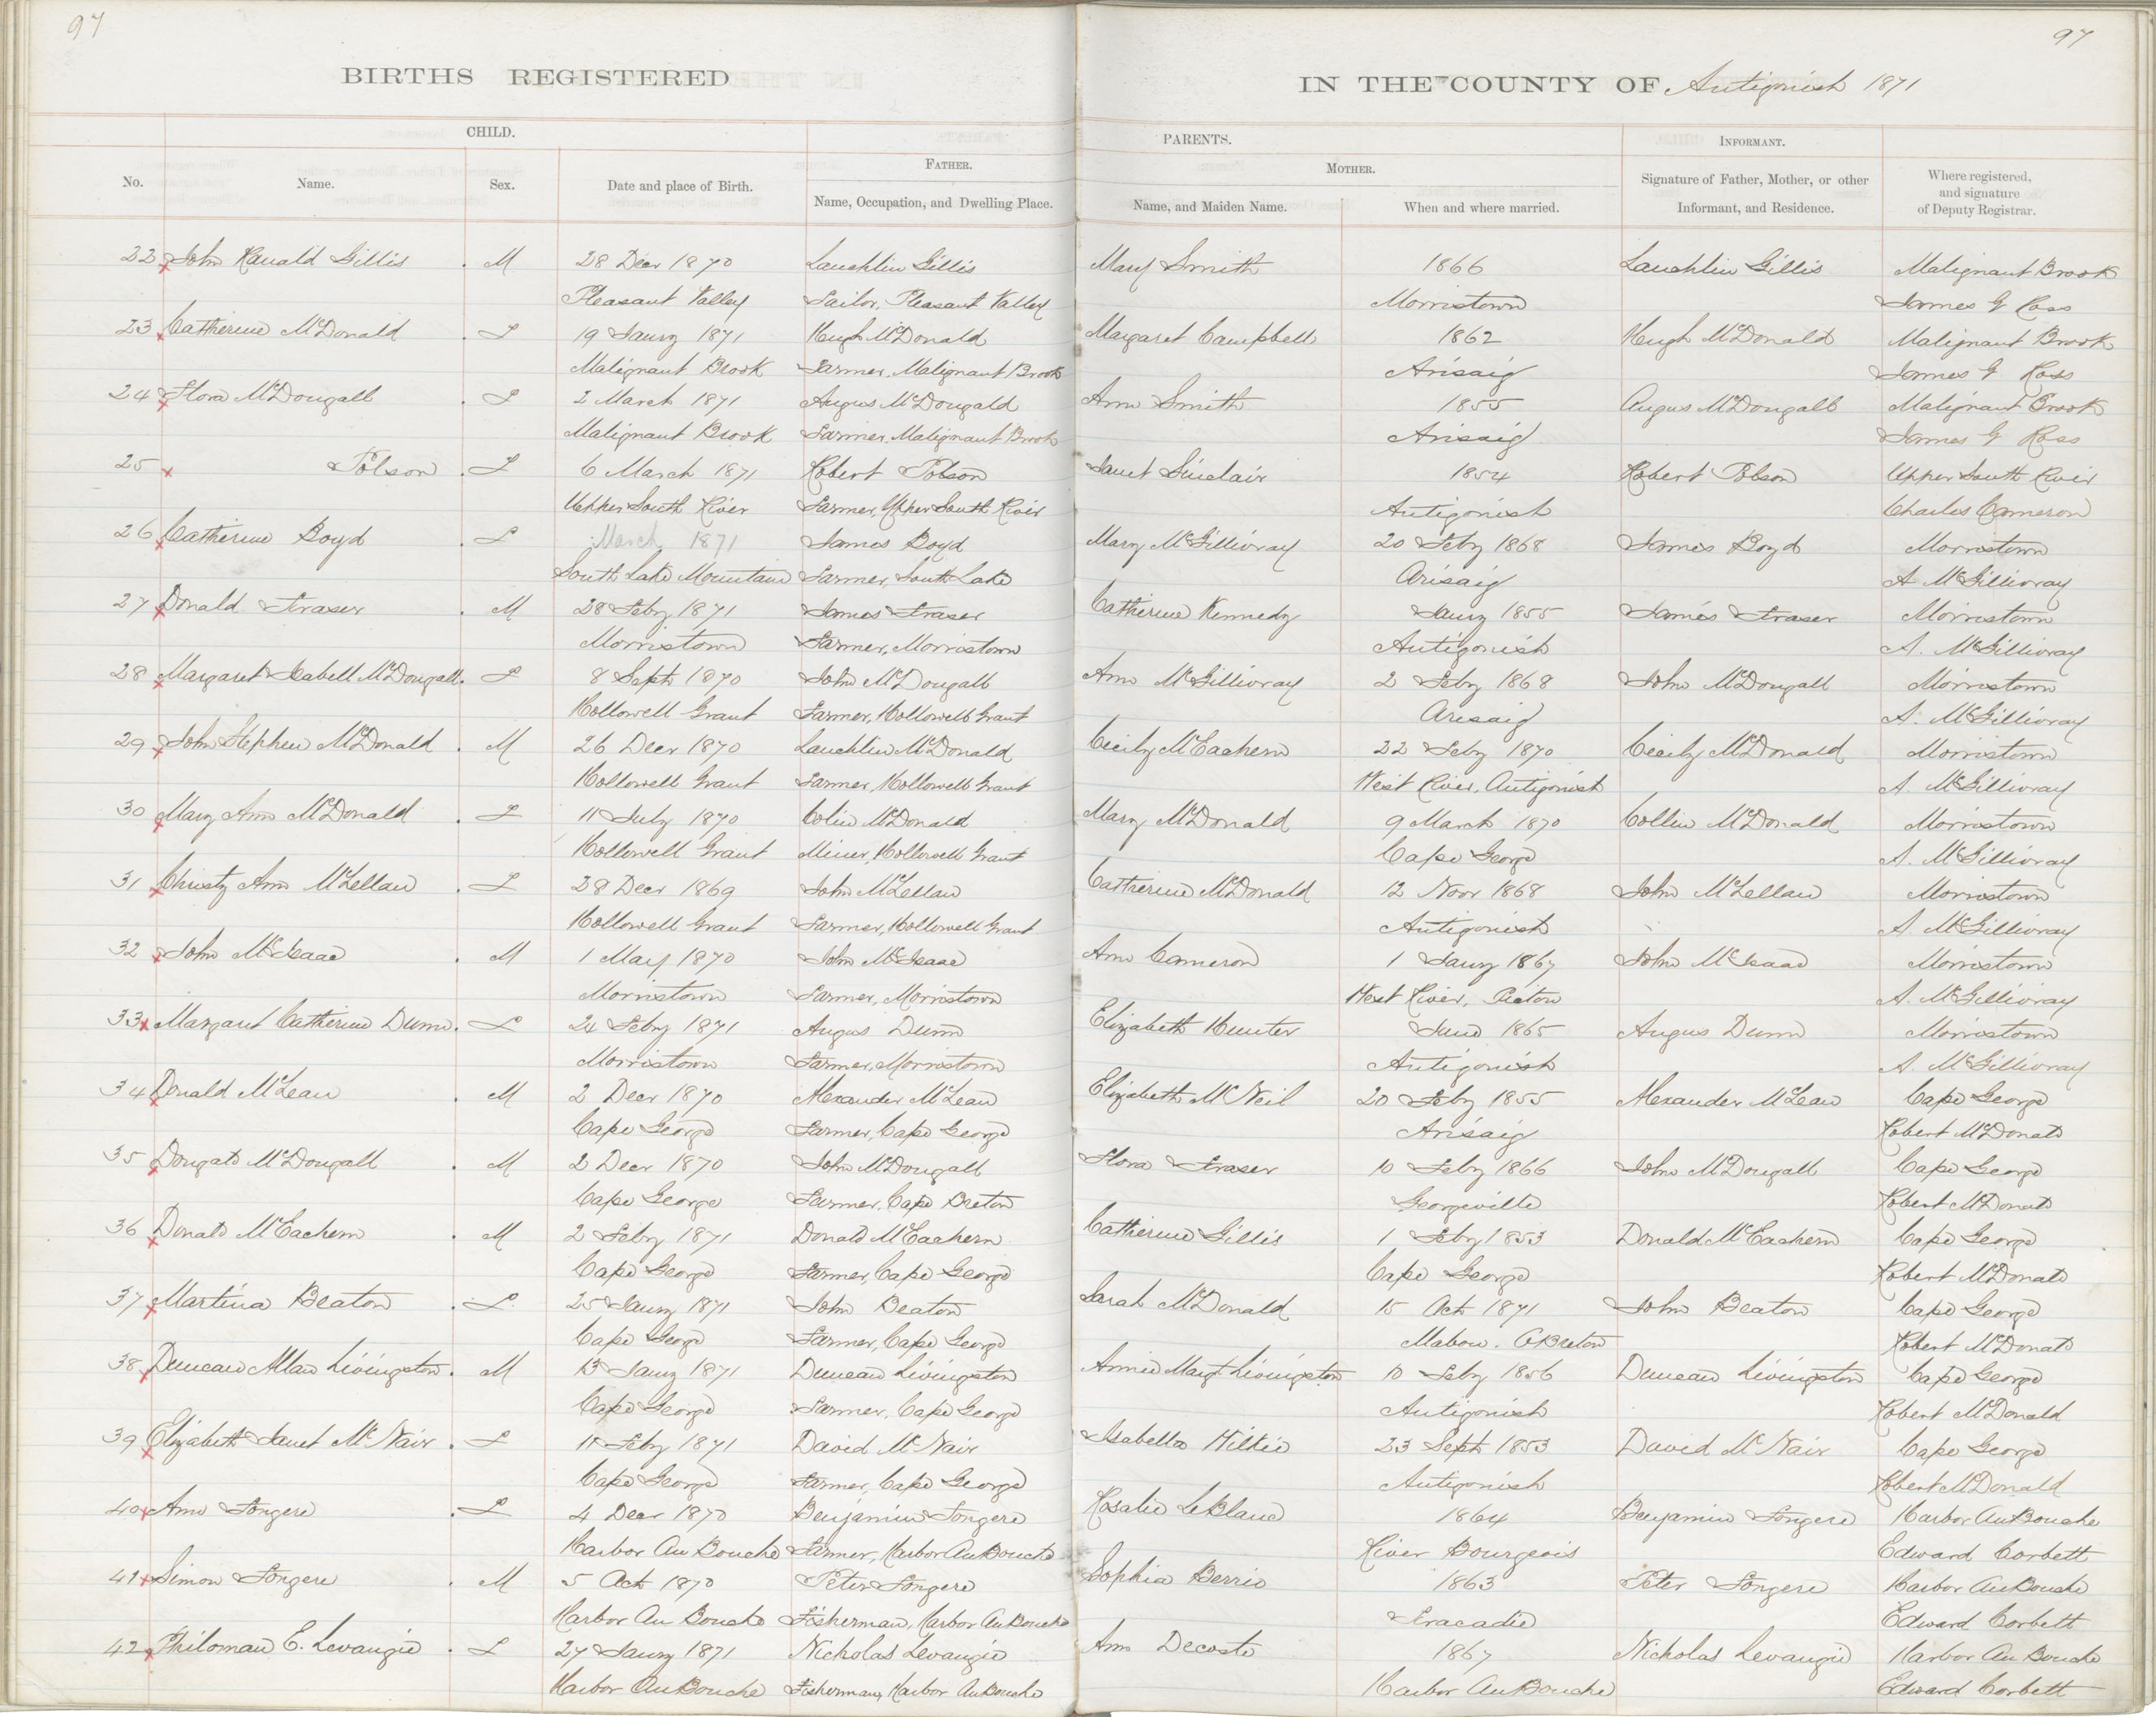 97
97
BIRTHS REGISTERED
IN THE COUNTY OF Antigonish 1871
CHILD.
PARENTS.
INFORMANT.
No.
Name.
Sex.
Date and place of Birth.
FATHER.
Name, Occupation, and Dwelling Place.
MOTHER.
Name, and Maiden Name.
When and where married.
Signature of Father, Mother, or other
Informant, and Residence.
Where registered,
and signature
of Deputy Registrar.
22 John Ranald Gillis . M 28 Decr 1870 Lauchlin Gillis Mary Smith 1866 Lauchlin Gillis Malignant Brook
Pleasant Valley Sailor, Pleasant Valley Morristown James G Ross
23 Catherine McDonald . F 19 Jany 1871 Hugh McDonald Margaret Campbell 1862 Hugh McDonald Malignant Brook
Malignant Brook Farmer, Malignant Brook Arisaig James G Ross
24 Flora McDougall . F 2 March 1871 Angus McDougald Ann Smith 1855 Angus McDougall Malignant Brook
Malignant Brook Farmer, Malignant Brook Arisaig James G Ross
25 Polson . F 6 March 1871 Robert Polson Janet Sinclair 1854 Robert Polson Upper South River
Upper South River Farmer, Upper South River Antigonish Charles Cameron
26 Catherine Boyd . F March 1871 James Boyd Mary McGillivray 20 Feby 1868 James Boyd Morristown
South Lake Mountain Farmer, South Lake Arisaig A McGillivray
27 Donald Fraser . M 28 Feby 1871 James Fraser Catherine Kennedy Jany 1855 James Fraser Morristown
Morristown Farmer, Morristown Antigonish A. McGillivray
28 Margaret Isabell McDougall . F 8 Sept 1870 John McDougall Ann McGillivray 2 Feby 1868 John McDougall Morristown
Hollowell Grant Farmer, Hollowell Grant Arisaig A. McGillivray
29 John Stephen McDonald . M 26 Decr 1870 Lauchlin McDonald Cecily McEachern 22 Feby 1870 Cecily McDonald Morristown
Hollowell Grant Farmer, Hollowell Grant West River, Antigonish A. McGillivray
30 Mary Ann McDonald . F 11 July 1870 Colin McDonald Mary McDonald 9 March 1870 Collin McDonald Morristown
Hollowell Grant Miner, Hollowell Grant Cape George A. McGillivray
31 Christy Ann McLellan . F 28 Decr 1869 John McLellan Catherine McDonald 12 Novr 1868 John McLellan Morristown
Hollowell Grant Farmer, Hollowell Grant Antigonish A. McGillivray
32 John McIsaac . M 1 May 1870 John McIsaac Ann Cameron 1 Jany 1867 John McIsaac Morristown
Morristown Farmer, Morristown West River, Pictou A. McGillivray
33 Margaret Catherine Dunn . F 24 Feby 1871 Angus Dunn Elizabeth Hunter June 1865 Angus Dunn Morristown
Morristown Farmer, Morristown Antigonish A. McGillivray
34 Donald McLean . M 2 Decr 1870 Alexander McLean Elizabeth McNeil 20 Feby 1855 Alexander McLean Cape George
Cape George Farmer, Cape George Arisaig Robert McDonald
35 Dougald McDougall . M 2 Decr 1870 John McDougall Flora Fraser 10 Feby 1866 John McDougall Cape George
Cape George Farmer, Cape Breton Georgeville Robert McDonald
36 Donald McEachern . M 2 Feby 1871 Donald McEachern Catherine Gillis 1 Feby 1853 Donald McEachern Cape George
Cape George Farmer, Cape George Cape George Robert McDonald
37 Martina Beaton . F 25 Jany 1871 John Beaton Sarah McDonald 15 Oct 1871 John Beaton Cape George
Cape George Farmer, Cape George Mabou. C Breton Robert McDonald
38 Duncan Allan Livingston . M 13 Jany 1871 Duncan Livingston Annie Margt Livingston 10 Feby 1856 Duncan Livingston Cape George
Cape George Farmer, Cape George Antigonish Robert McDonald
39 Elizabeth Janet McNair . F 11 Feby 1871 David McNair Isabella Wilkie 23 Sept 1853 David McNair Cape George
Cape George Farmer, Cape George Antigonish Robert McDonald
40 Ann Fongere . F 4 Decr 1870 Benjamin Fongere Rosalie LeBlanc 1864 Benjamin Fongere Harbor Au Bouche
Harbor Au Bouche Farmer, Harbor Au Bouche River Bourgeois Edward Corbett
41 Simon Fongere . M 5 Oct 1870 Peter Fongere Sophia Berrio 1863 Peter Fongere Harbor Au Bouche
Harbor Au Bouche Fisherman, Harbor Au Bouche Tracadie Edward Corbett
42 Philoman E. Levangie . F 27 Jany 1871 Nicholas Levangie Ann Decoste 1867 Nicholas Levangie Harbor Au Bouche
Harbor Au Bouche Fisherman, Harbor Au Bouche Harbor Au Bouche Edward Corbett